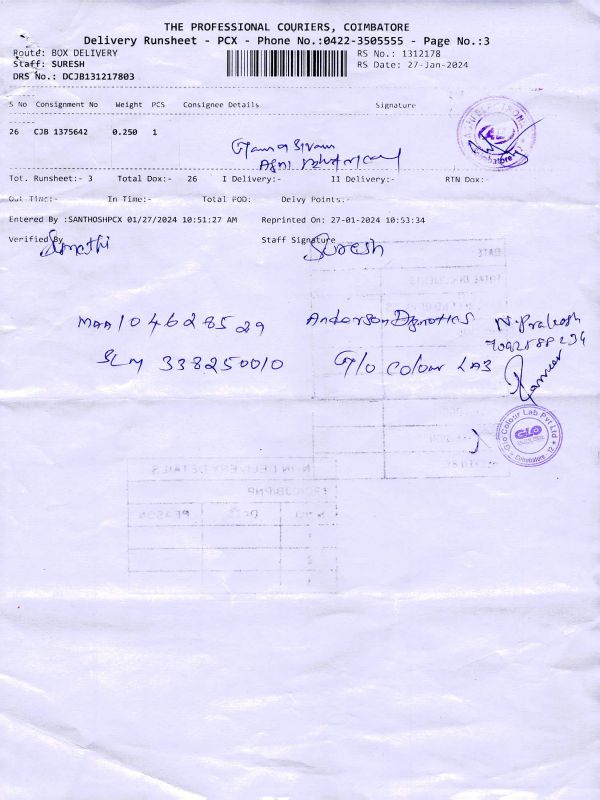 THE PROFESSIONAL COURIERS, COIMBATORE
Delivery Runsheet - PCX - Phone No.:0422-3505555 - Page No.:3
Route: BOX DELIVERY RS No.: 1312178
Staff: SURESH RS Date: 27-Jan-2024
DRS No.: DCJB131217803
S No Consignment No Weight PCS Consignee Details Signature
26 CJB 1375642 0.250 1
Tot. Runsheet:- 3 Total Dox:- 26 I Delivery:- II Delivery:- RTN Dox:-
Out Time:- In Time:- Total POD: Delvy Points:-
Entered By :SANTHOSHPCX 01/27/2024 10:51:27 AM Reprinted On: 27-01-2024 10:53:34
Verified By Staff Signature
Suresh
MAA 10 4628529 Anderson N. Prakash
SLM 338250010 Glo Colour LAB
Glo Colour Lab Pvt Ltd
GLO
Coimbatore - 12
DATE
NON DELIVERY DETAILS
REASON